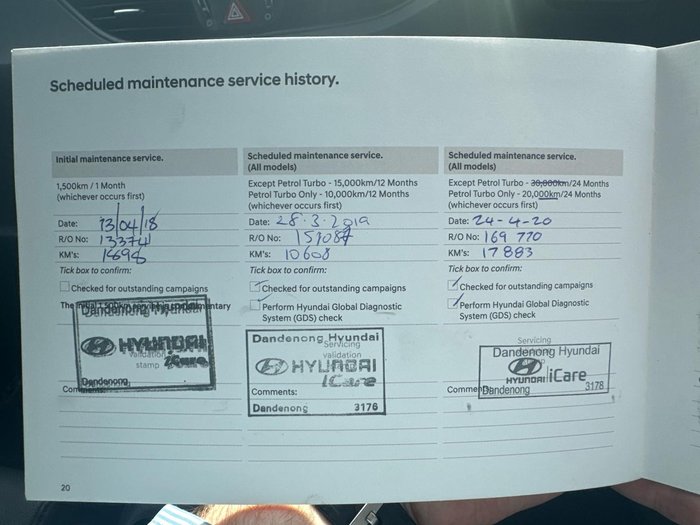 Scheduled maintenance service history.
Initial maintenance service.
1,500km / 1 Month
(whichever occurs first)
Date: 13/04/18
R/O No: 133741
KM's: 1898
Tick box to confirm:
Checked for outstanding campaigns
The initial 1,500km
Dandenong Hyundai
HYUNDAI
validation
stamp iCare
Dandenong
Comments:
Scheduled maintenance service.
(All models)
Except Petrol Turbo - 15,000km/12 Months
Petrol Turbo Only - 10,000km/12 Months
(whichever occurs first)
Date: 28.3.2019
R/O No:
KM's: 10608
Tick box to confirm:
Checked for outstanding campaigns
Perform Hyundai Global Diagnostic
System (GDS) check
Dandenong Hyundai
Servicing
validation
HYUNDAI
iCare
Comments:
Dandenong 3176
Scheduled maintenance service.
(All models)
Except Petrol Turbo - 30,000km/24 Months
Petrol Turbo Only - 20,000km/24 Months
(whichever occurs first)
Date: 24-4-20
R/O No: 169 770
KM's: 17 883
Tick box to confirm:
Checked for outstanding campaigns
Perform Hyundai Global Diagnostic
System (GDS) check
Servicing
Dandenong Hyundai
HYUNDAI iCare
Dandenong 3178
20